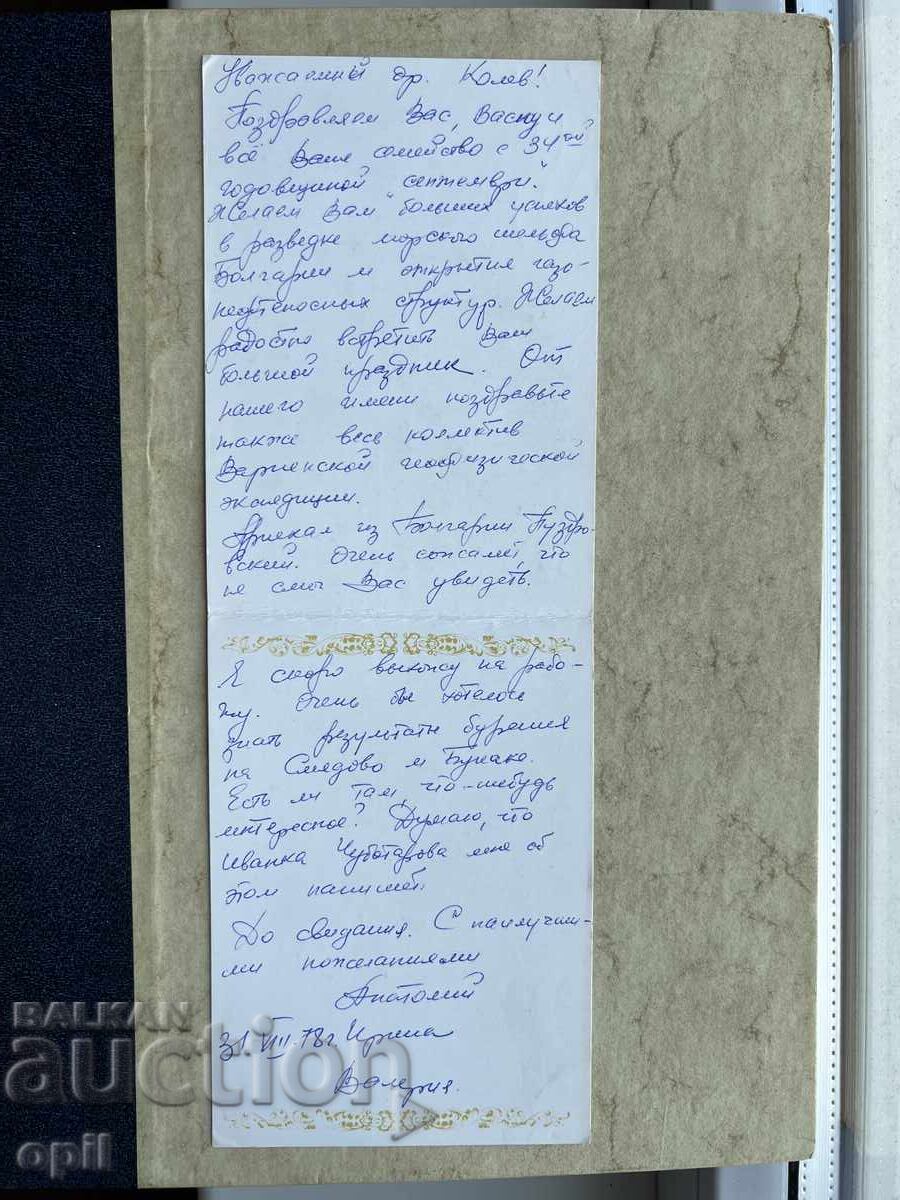 Уважаемый др. Колев!
Поздравляем Вас, Васку и
всё Ваше семейство с 34ой
годовещиной "септември".
Желаем Вам больших успехов
в разведке морского шельфа
Болгарии и открытия газо-
нефтеносных структур. Желаем
радостно встретить Ваш
большой праздник. От
нашего имени поздравьте
также весь коллектив
Варненской геофизической
экспедиции.
Приехал из Болгарии Пуздро-
вский. Очень сожалеет, что
не смог Вас увидеть.
Я скоро выхожу на рабо-
ту. Очень бы хотелось
знать результаты бурения
на Смядово и
Есть ли там что-нибудь
интересное? Думаю, что
Иванка Чуботарова мне об
этом напишет.
До свидания. С наилучши-
ми пожеланиями
Анатолий
31.VIII.78г. Ирина
Валерия.
BALKAN
auction
opil